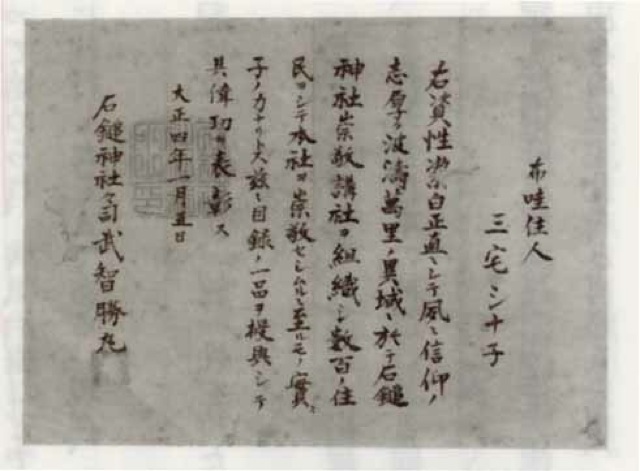 布哇住人
三宅シナ子
右資性潔白正直ニシテ夙ニ信仰ノ
志厚ク波濤萬里ノ異域ニ於テ石鎚
神社崇敬講社ヲ組織シ数百ノ住
民ヲシテ本社ヲ崇敬セシムルニ至ルモノ實ニ
子ノ力ナリトス茲ニ目録ノ一品ヲ授與シテ
其偉功ヲ表彰ス
大正四年一月五日
石鎚神社々司武智勝丸